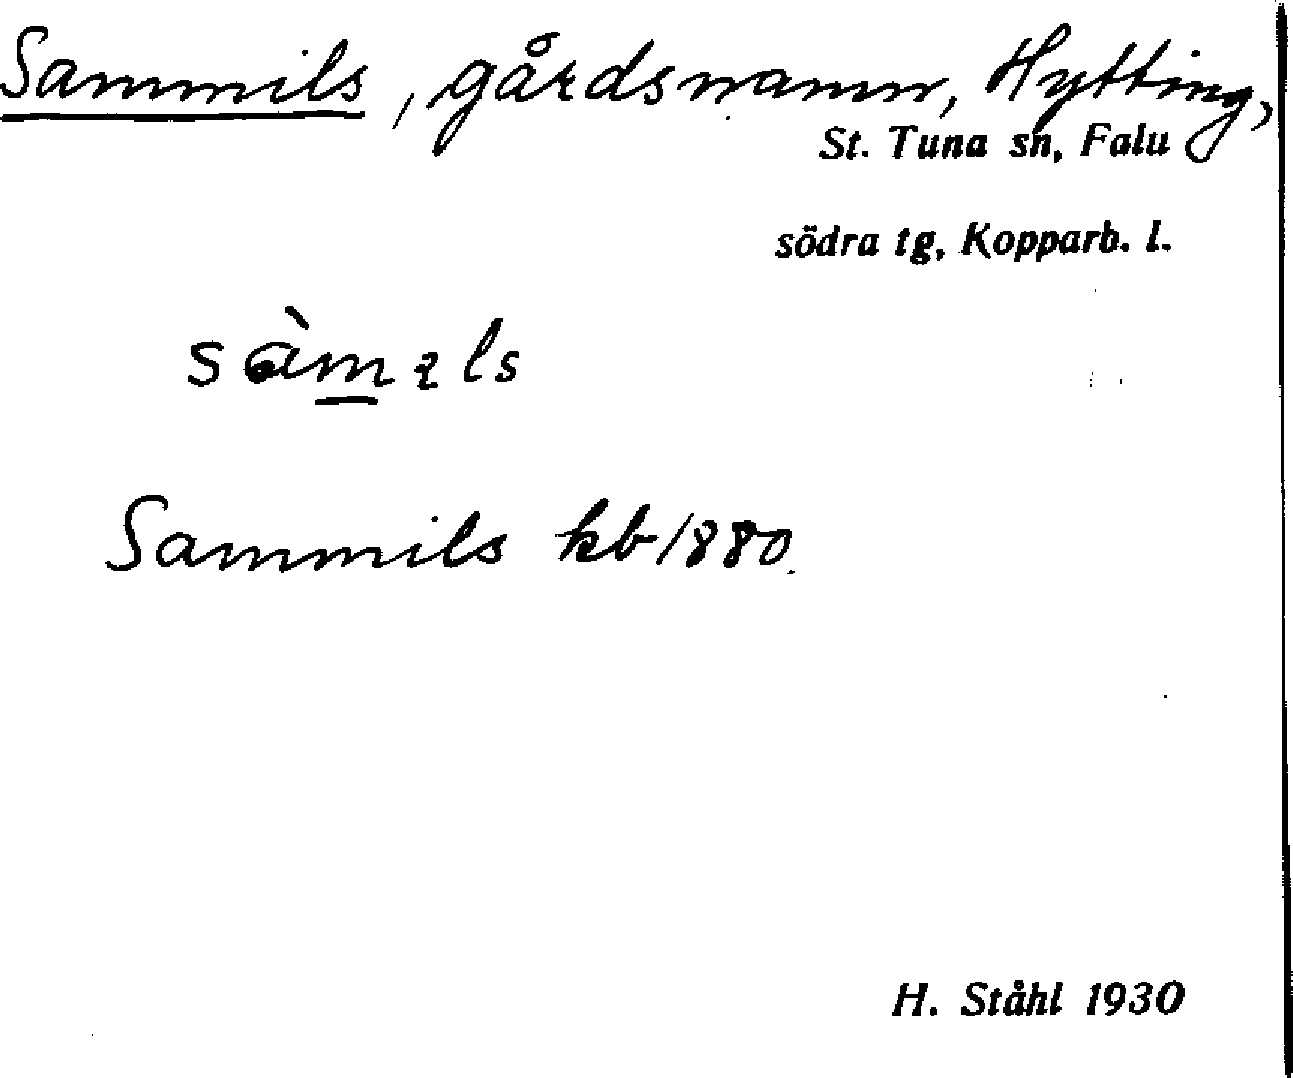 Sammils, gårdsnamn, Hytting,
St. Tuna sn, Falu
södra tg, Kopparb. l.
Sammils kb 1880.
H. Ståhl 1930